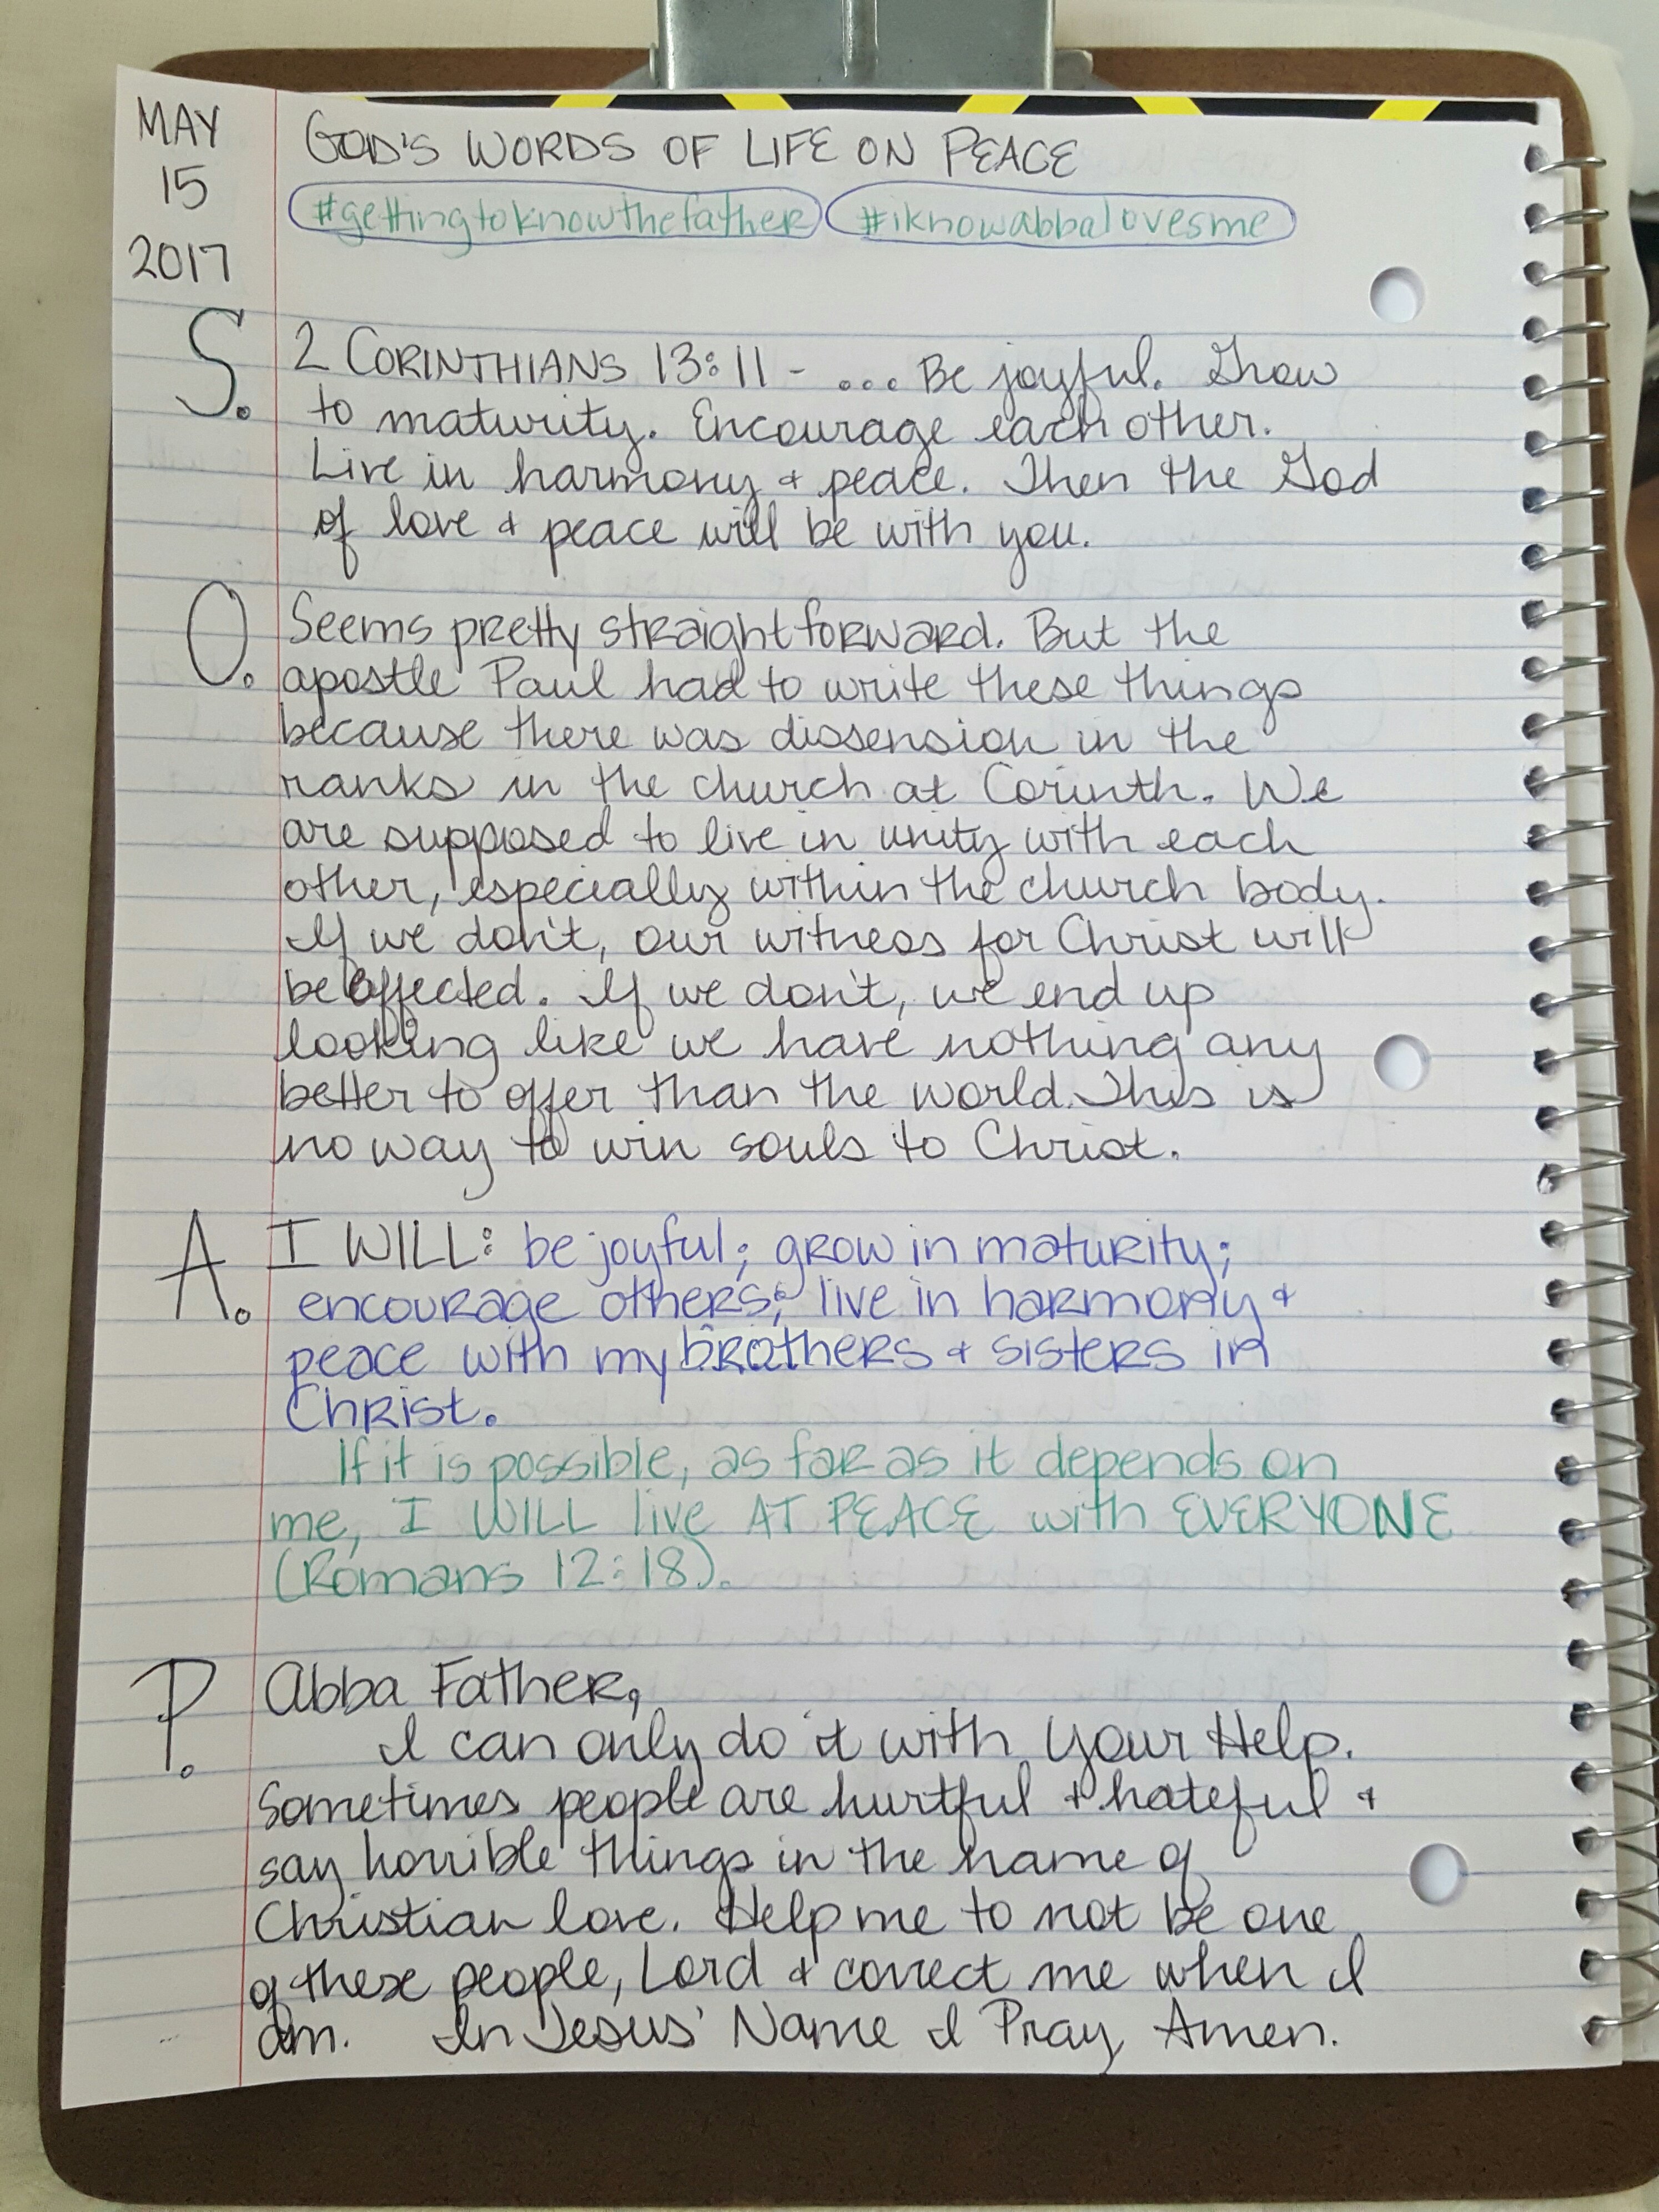 MAY
15
2017
GOD'S WORDS OF LIFE ON PEACE
#gettingtoknowthefather #iknowabbalovesme
S. 2 CORINTHIANS 13:11 - ... Be joyful. Grow
to maturity. Encourage each other.
Live in harmony & peace. Then the God
of love & peace will be with you.
O. Seems pretty straightforward. But the
apostle Paul had to write these things
because there was dissension in the
ranks in the church at Corinth. We
are supposed to live in unity with each
other, especially within the church body.
If we don't, our witness for Christ will
be affected. If we don't, we end up
looking like we have nothing any
better to offer than the world. This is
no way to win souls to Christ.
A. I WILL: be joyful; grow in maturity;
encourage others; live in harmony &
peace with my brothers & sisters in
Christ.
If it is possible, as far as it depends on
me, I WILL live AT PEACE with EVERYONE
(Romans 12:18).
P. Abba Father,
I can only do it with Your Help.
Sometimes people are hurtful & hateful &
say horrible things in the name of
Christian love. Help me to not be one
of these people, Lord & correct me when I
am. In Jesus' Name I Pray, Amen.